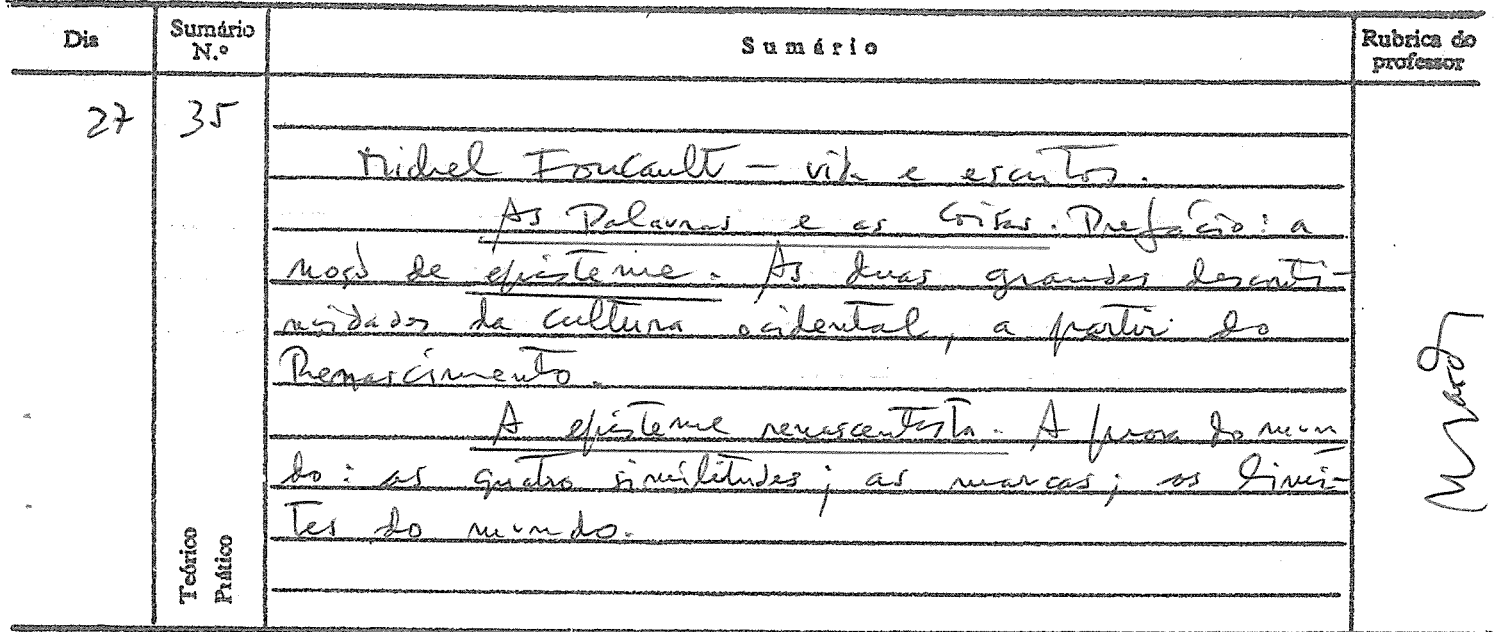 Dia
Sumário N.º
Sumário
Rubrica do professor
27
35
Michel Foucault — vida e escritos.
As Palavras e as Coisas. Prefácio: a
noção de episteme. As duas grandes desconti-
nuidades da cultura ocidental, a partir do
Renascimento.
A episteme renascentista. A prosa do mun
do: as quatro similitudes; as marcas; os limi-
tes do mundo.
Teórico
Prático